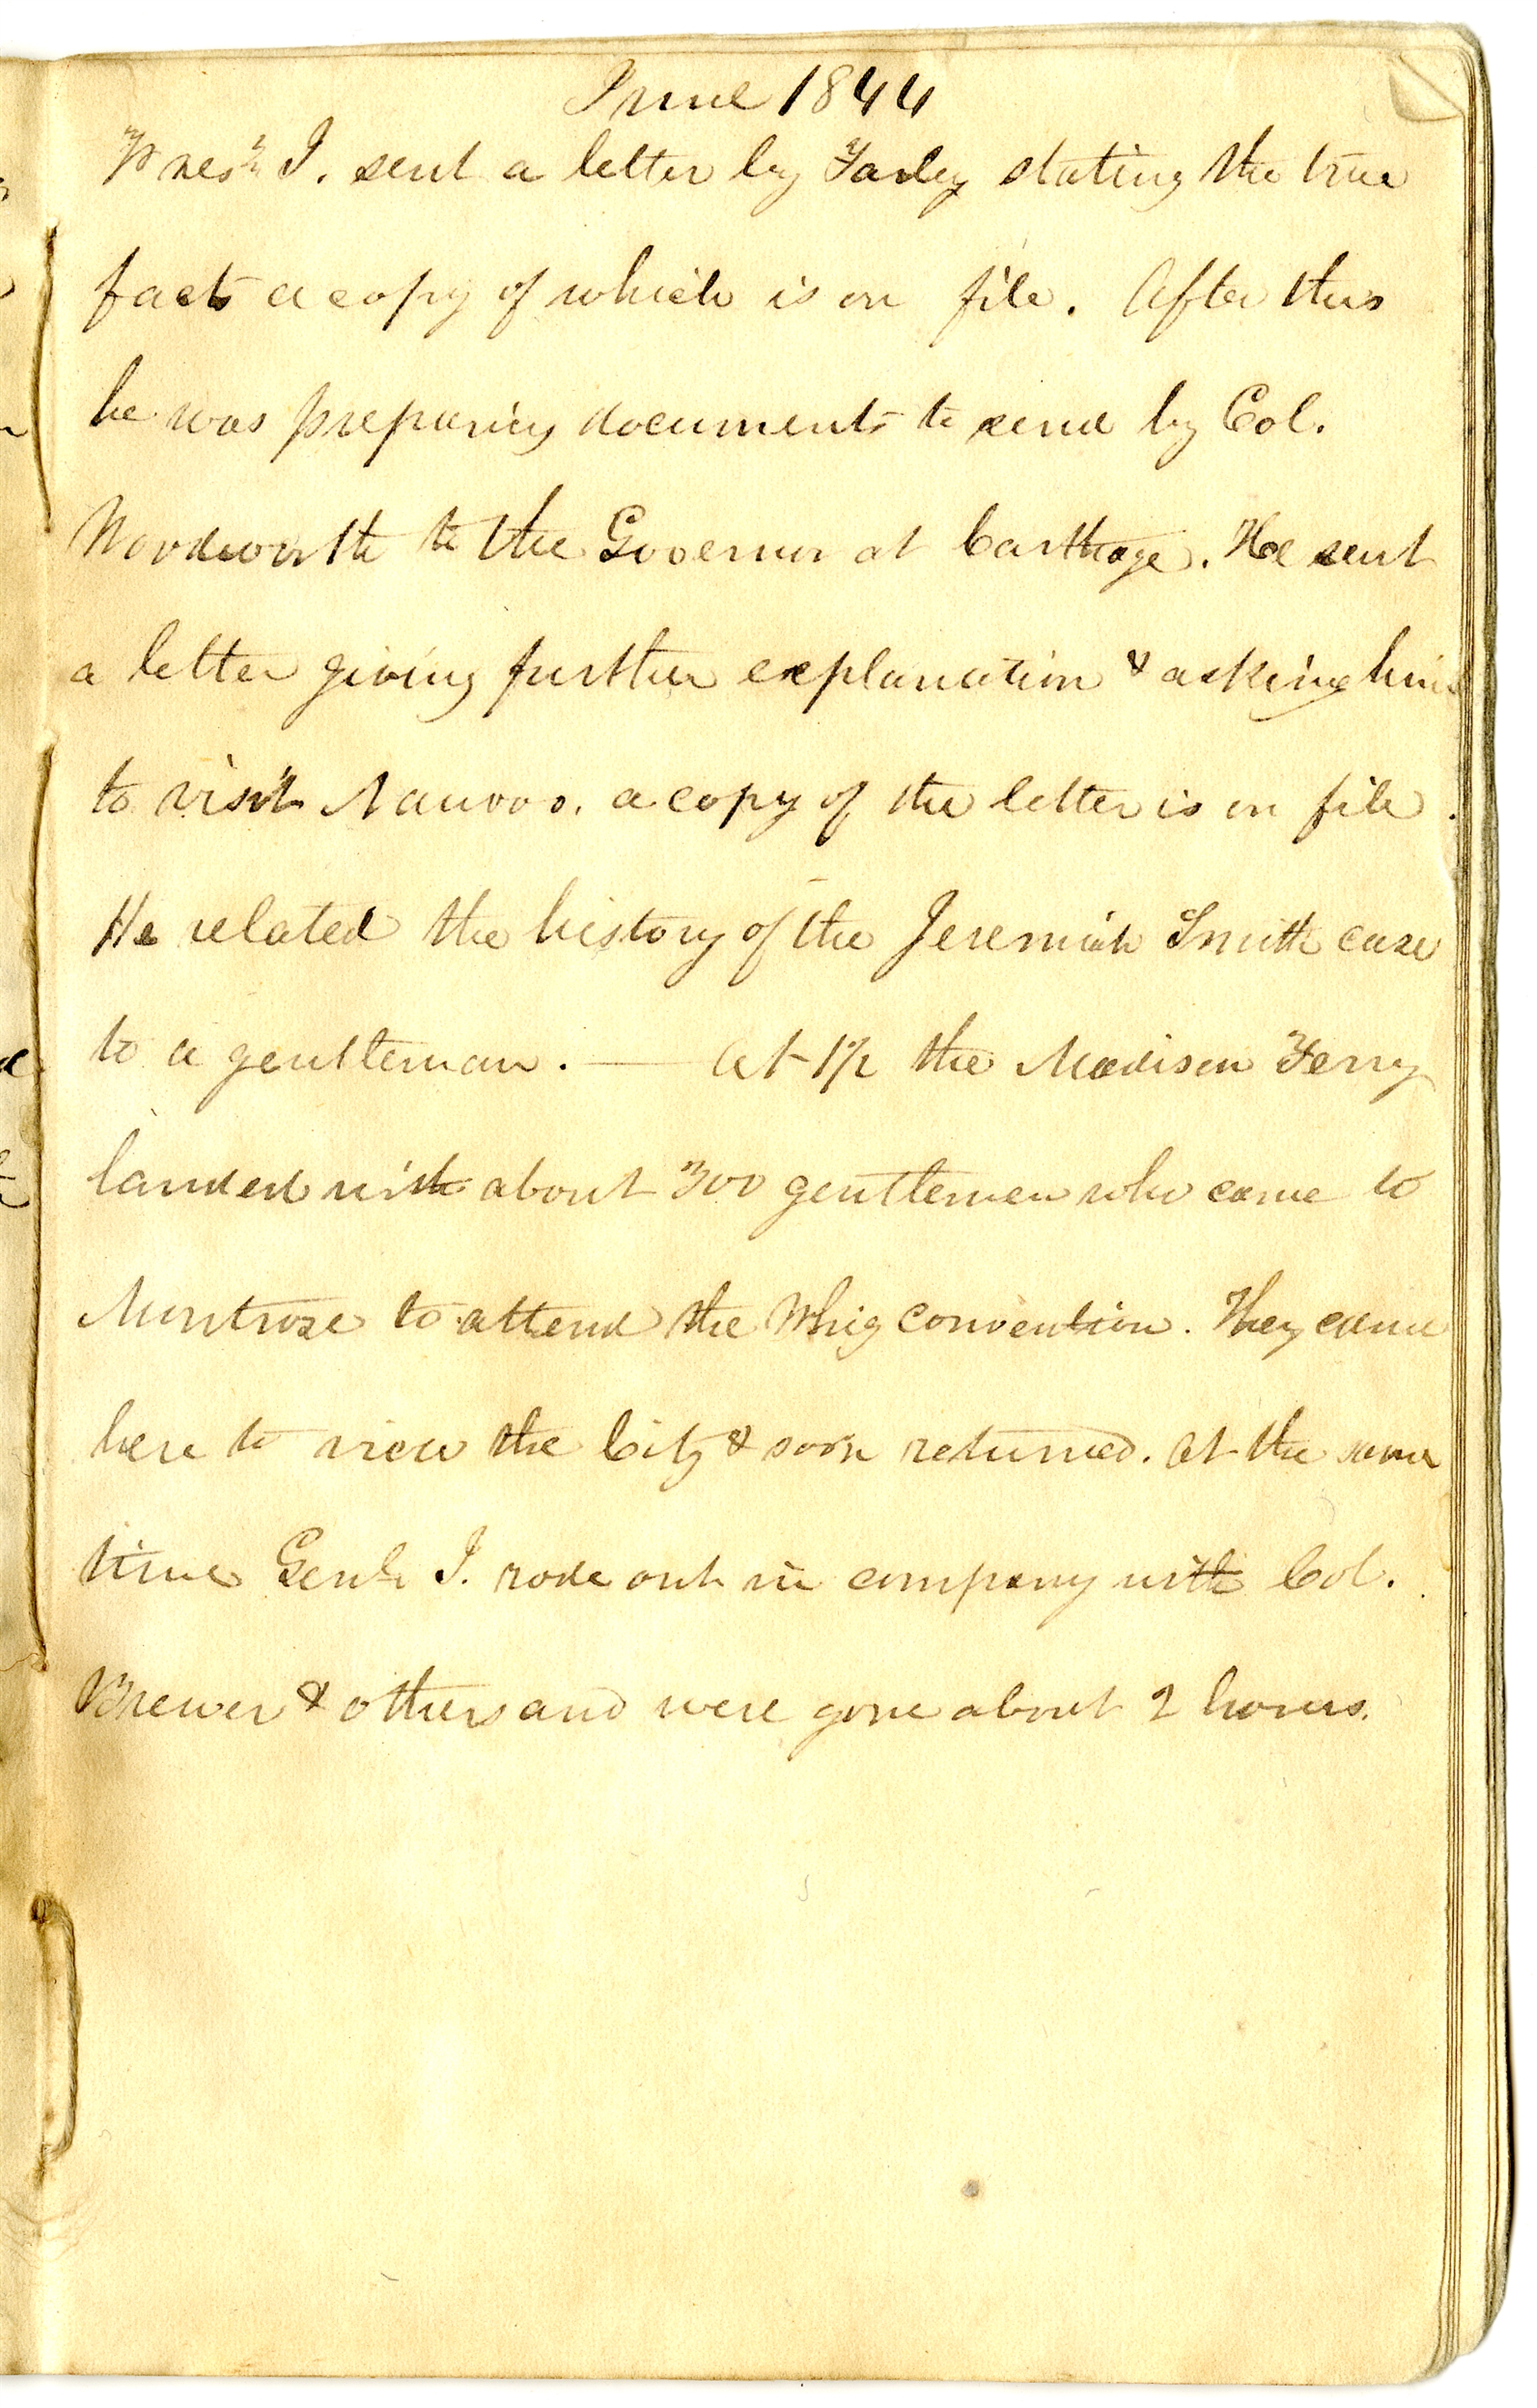 June 1844
Prest. J. sent a letter by Farley stating the true
facts a copy of which is on file. After this
he was preparing documents to send by Col.
Woodworth to the Governor at Carthage. He sent
a letter giving further explanation & asking him
to visit Nauvoo. a copy of the letter is on file.
He related the history of the Jeremiah Smith case
to a gentleman. — At 1/2 the Madison Ferry
landed with about 300 gentlemen who came to
Montrose to attend the Whig convention. They came
here to view the City & soon returned. At the same
time Genl. J. rode out in company with Col.
Brewer & others and were gone about 2 hours.